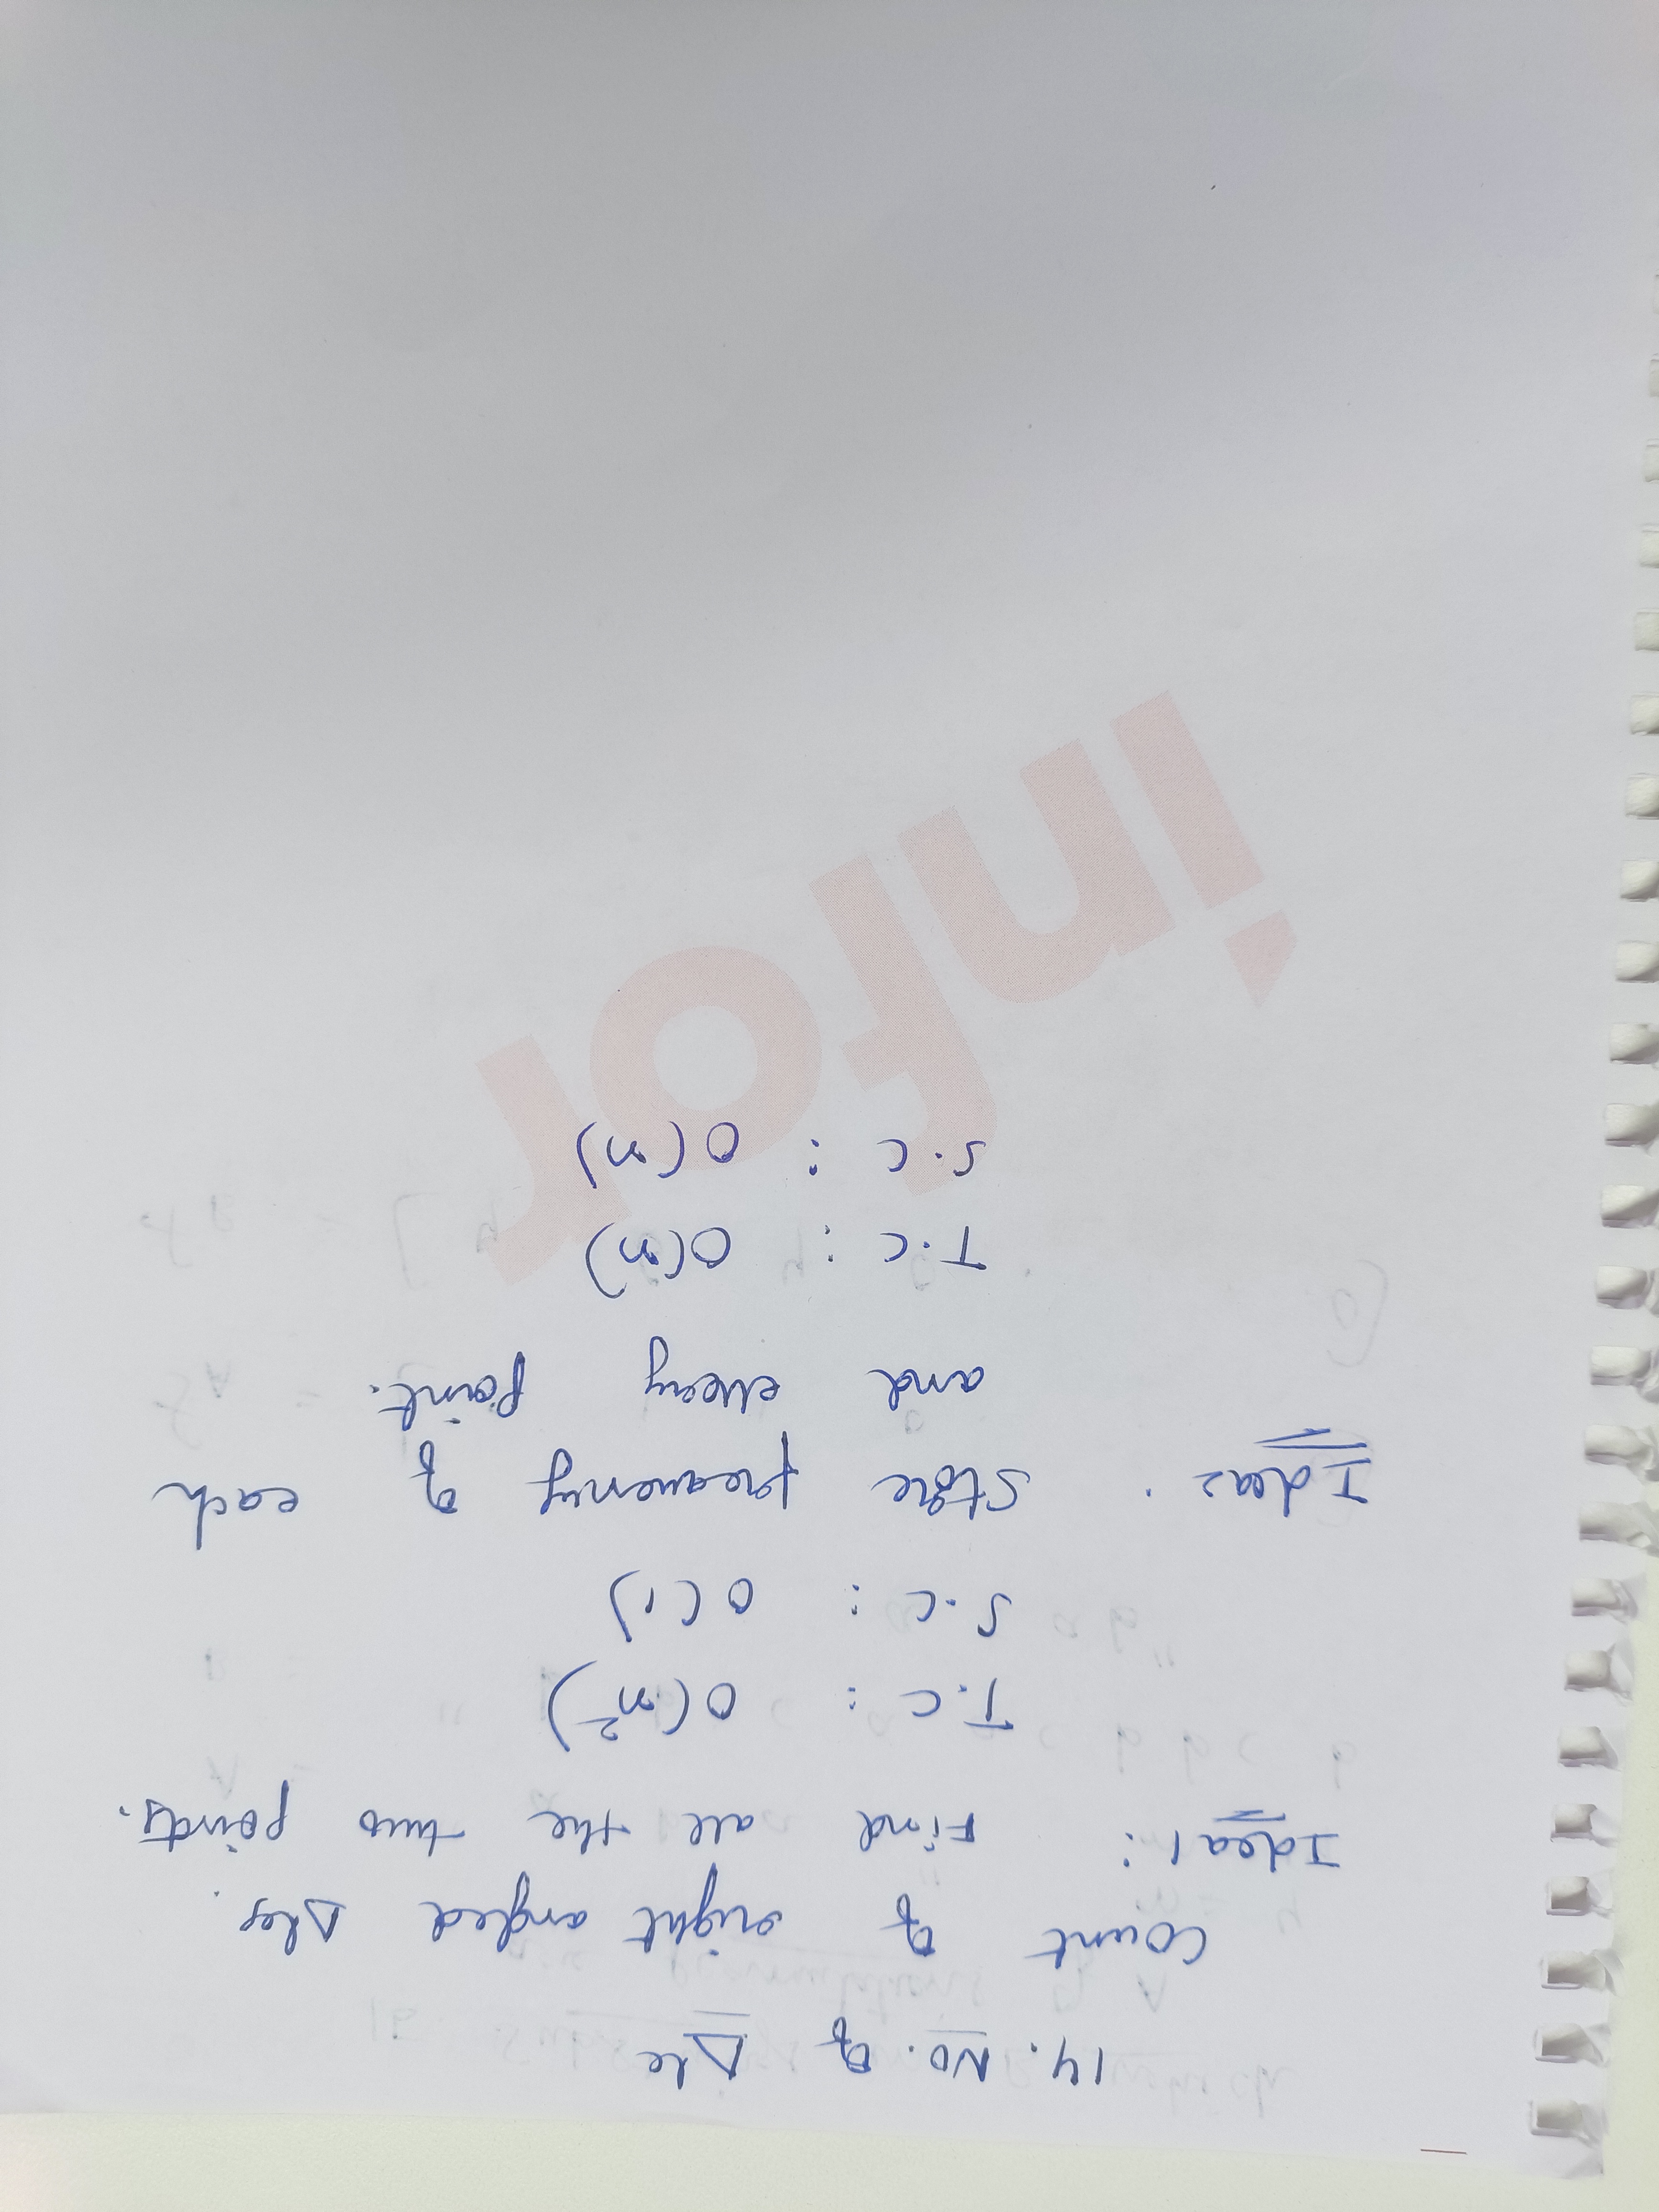 14. No. of Δle
count of right angled Δles.
Idea1: Find all the two points.
T.C : O(n²)
S.C : O(1)
Idea2. Store frequency of each
and every point.
T.C : O(n)
S.C : O(n)
infor